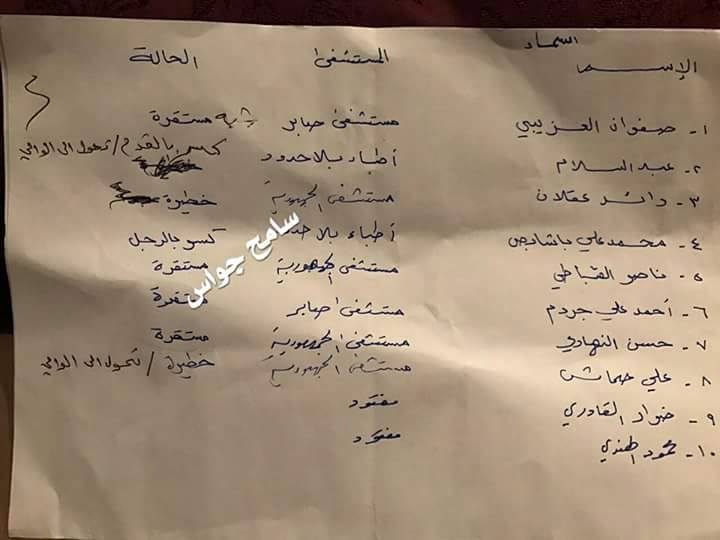 اسماء
الإسم المستشفى الحالة
١- صفوان العزيبي مستشفى صابر شبه مستقرة
٢- عبدالسلام أطباء بلاحدود كسر بالقدم / تحول الى الوالي
٣- رائد عقلان مستشفى الجمهورية خطيرة
٤- محمد علي أطباء بلاحدود كسر بالرجل
٥- ناصر القباطي مستشفى الجمهورية مستقرة
٦- أحمد علي مستشفى صابر مستقرة
٧- حسن النهاري مستشفى الجمهورية مستقرة
٨- علي مستشفى الجمهورية خطيرة / تحول الى الوالي
٩- القادري مفقود
١٠- محمود الهندي مفقود
سامح جواس